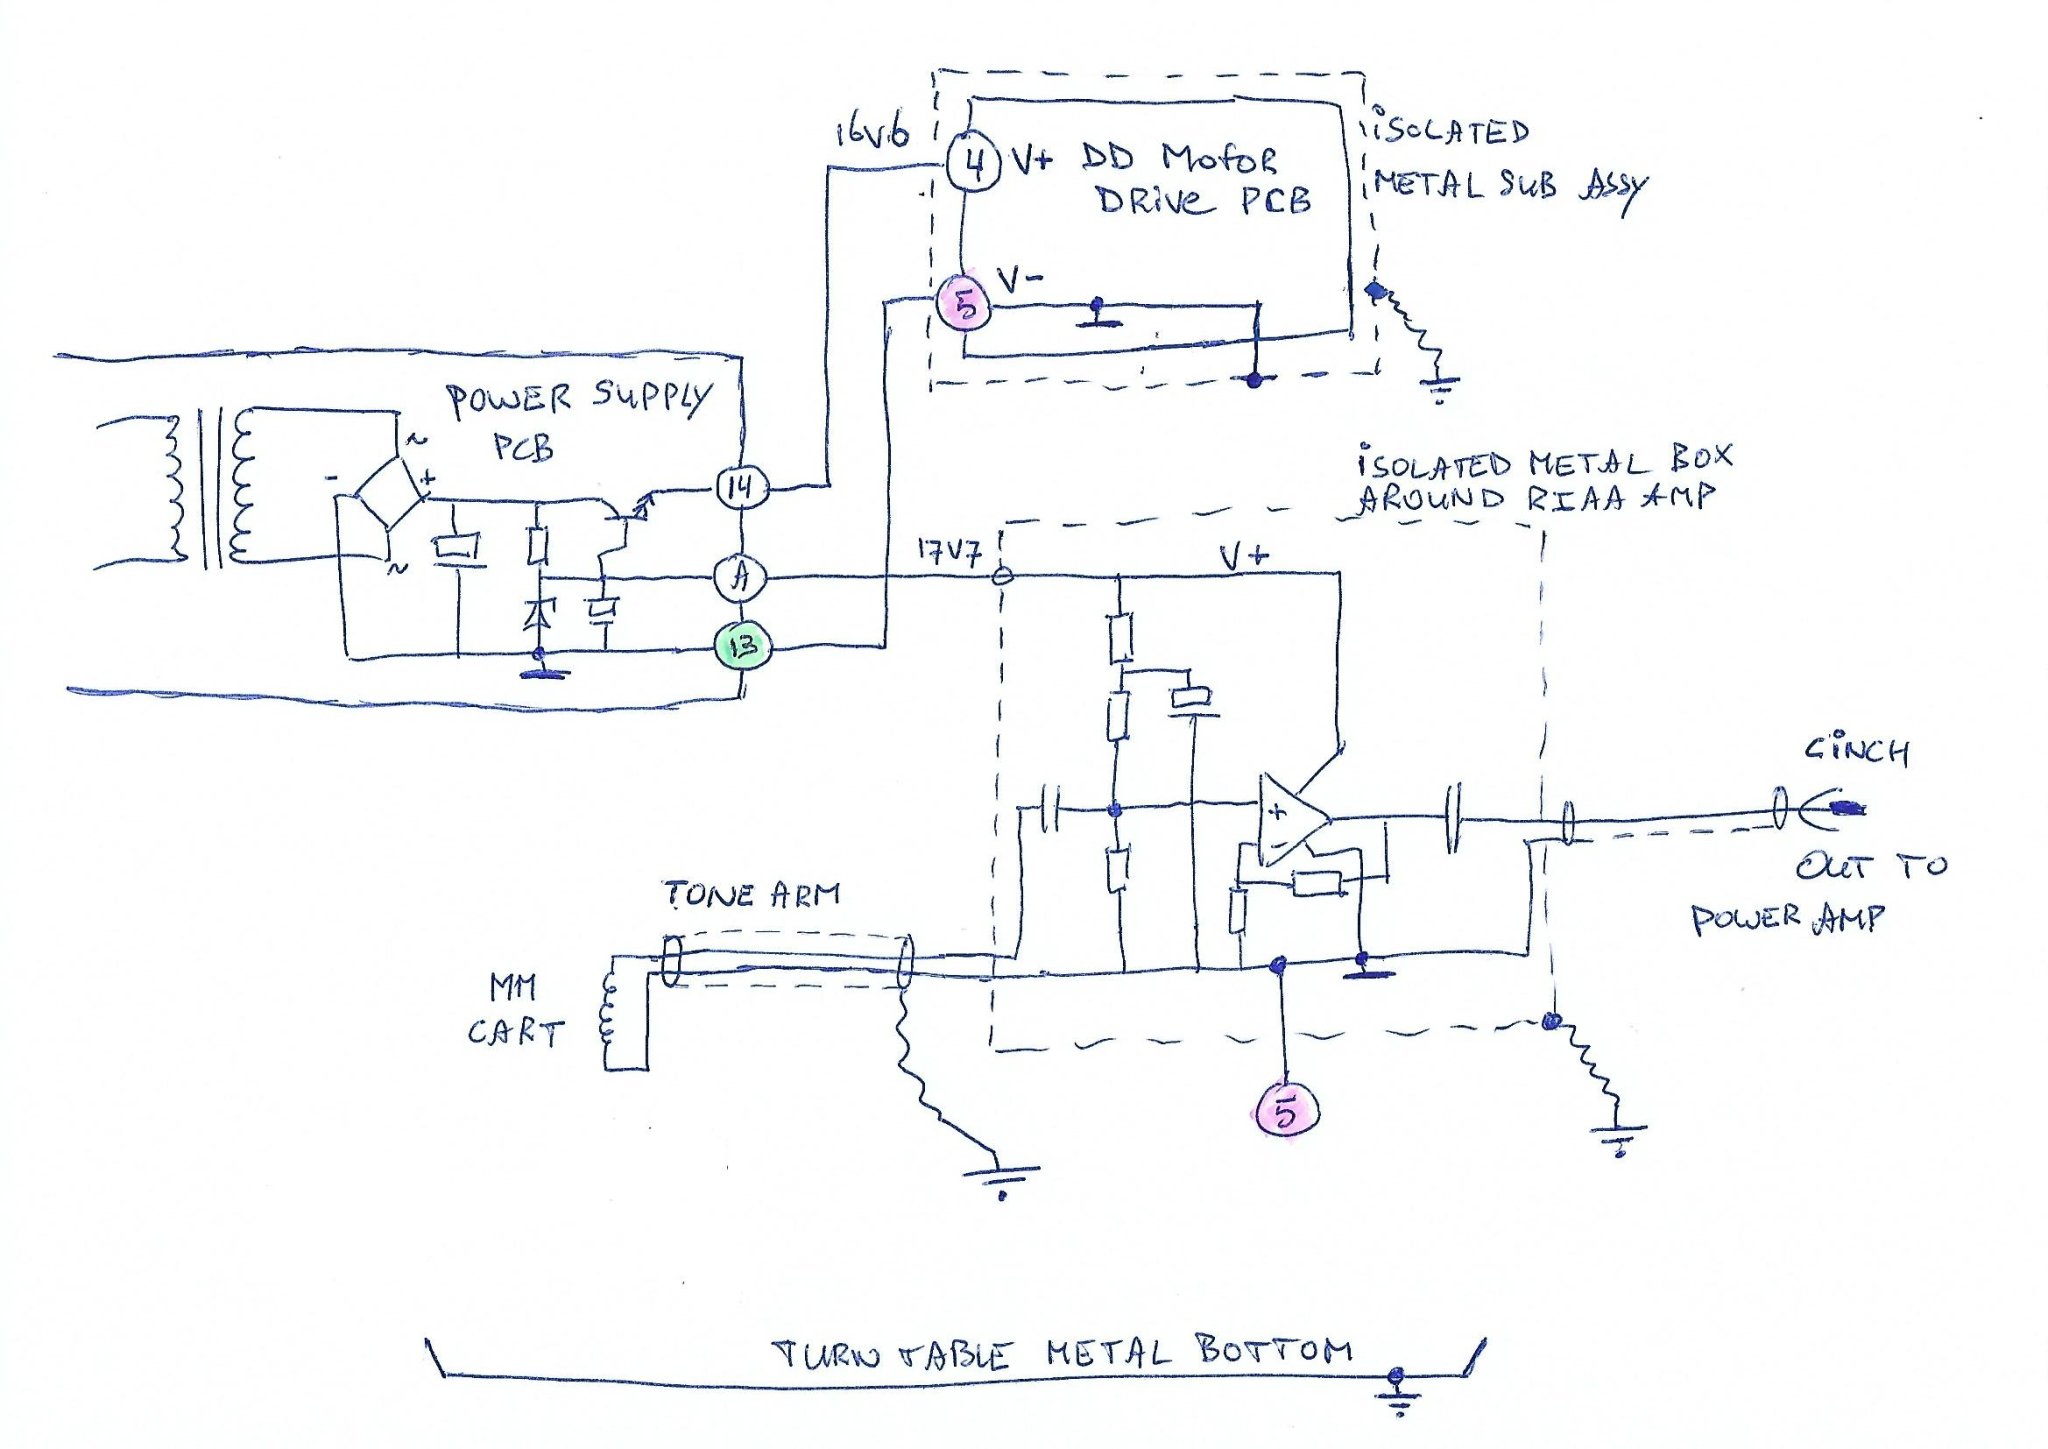 16V6
4
V+
DD MOTOR
DRIVE PCB
ISOLATED
METAL SUB ASSY
5
V-
POWER SUPPLY
PCB
~
-
+
~
14
A
13
17V7
ISOLATED METAL BOX
AROUND RIAA AMP
V+
+
-
CINCH
OUT TO
POWER AMP
TONE ARM
MM
CART
5
TURN TABLE METAL BOTTOM